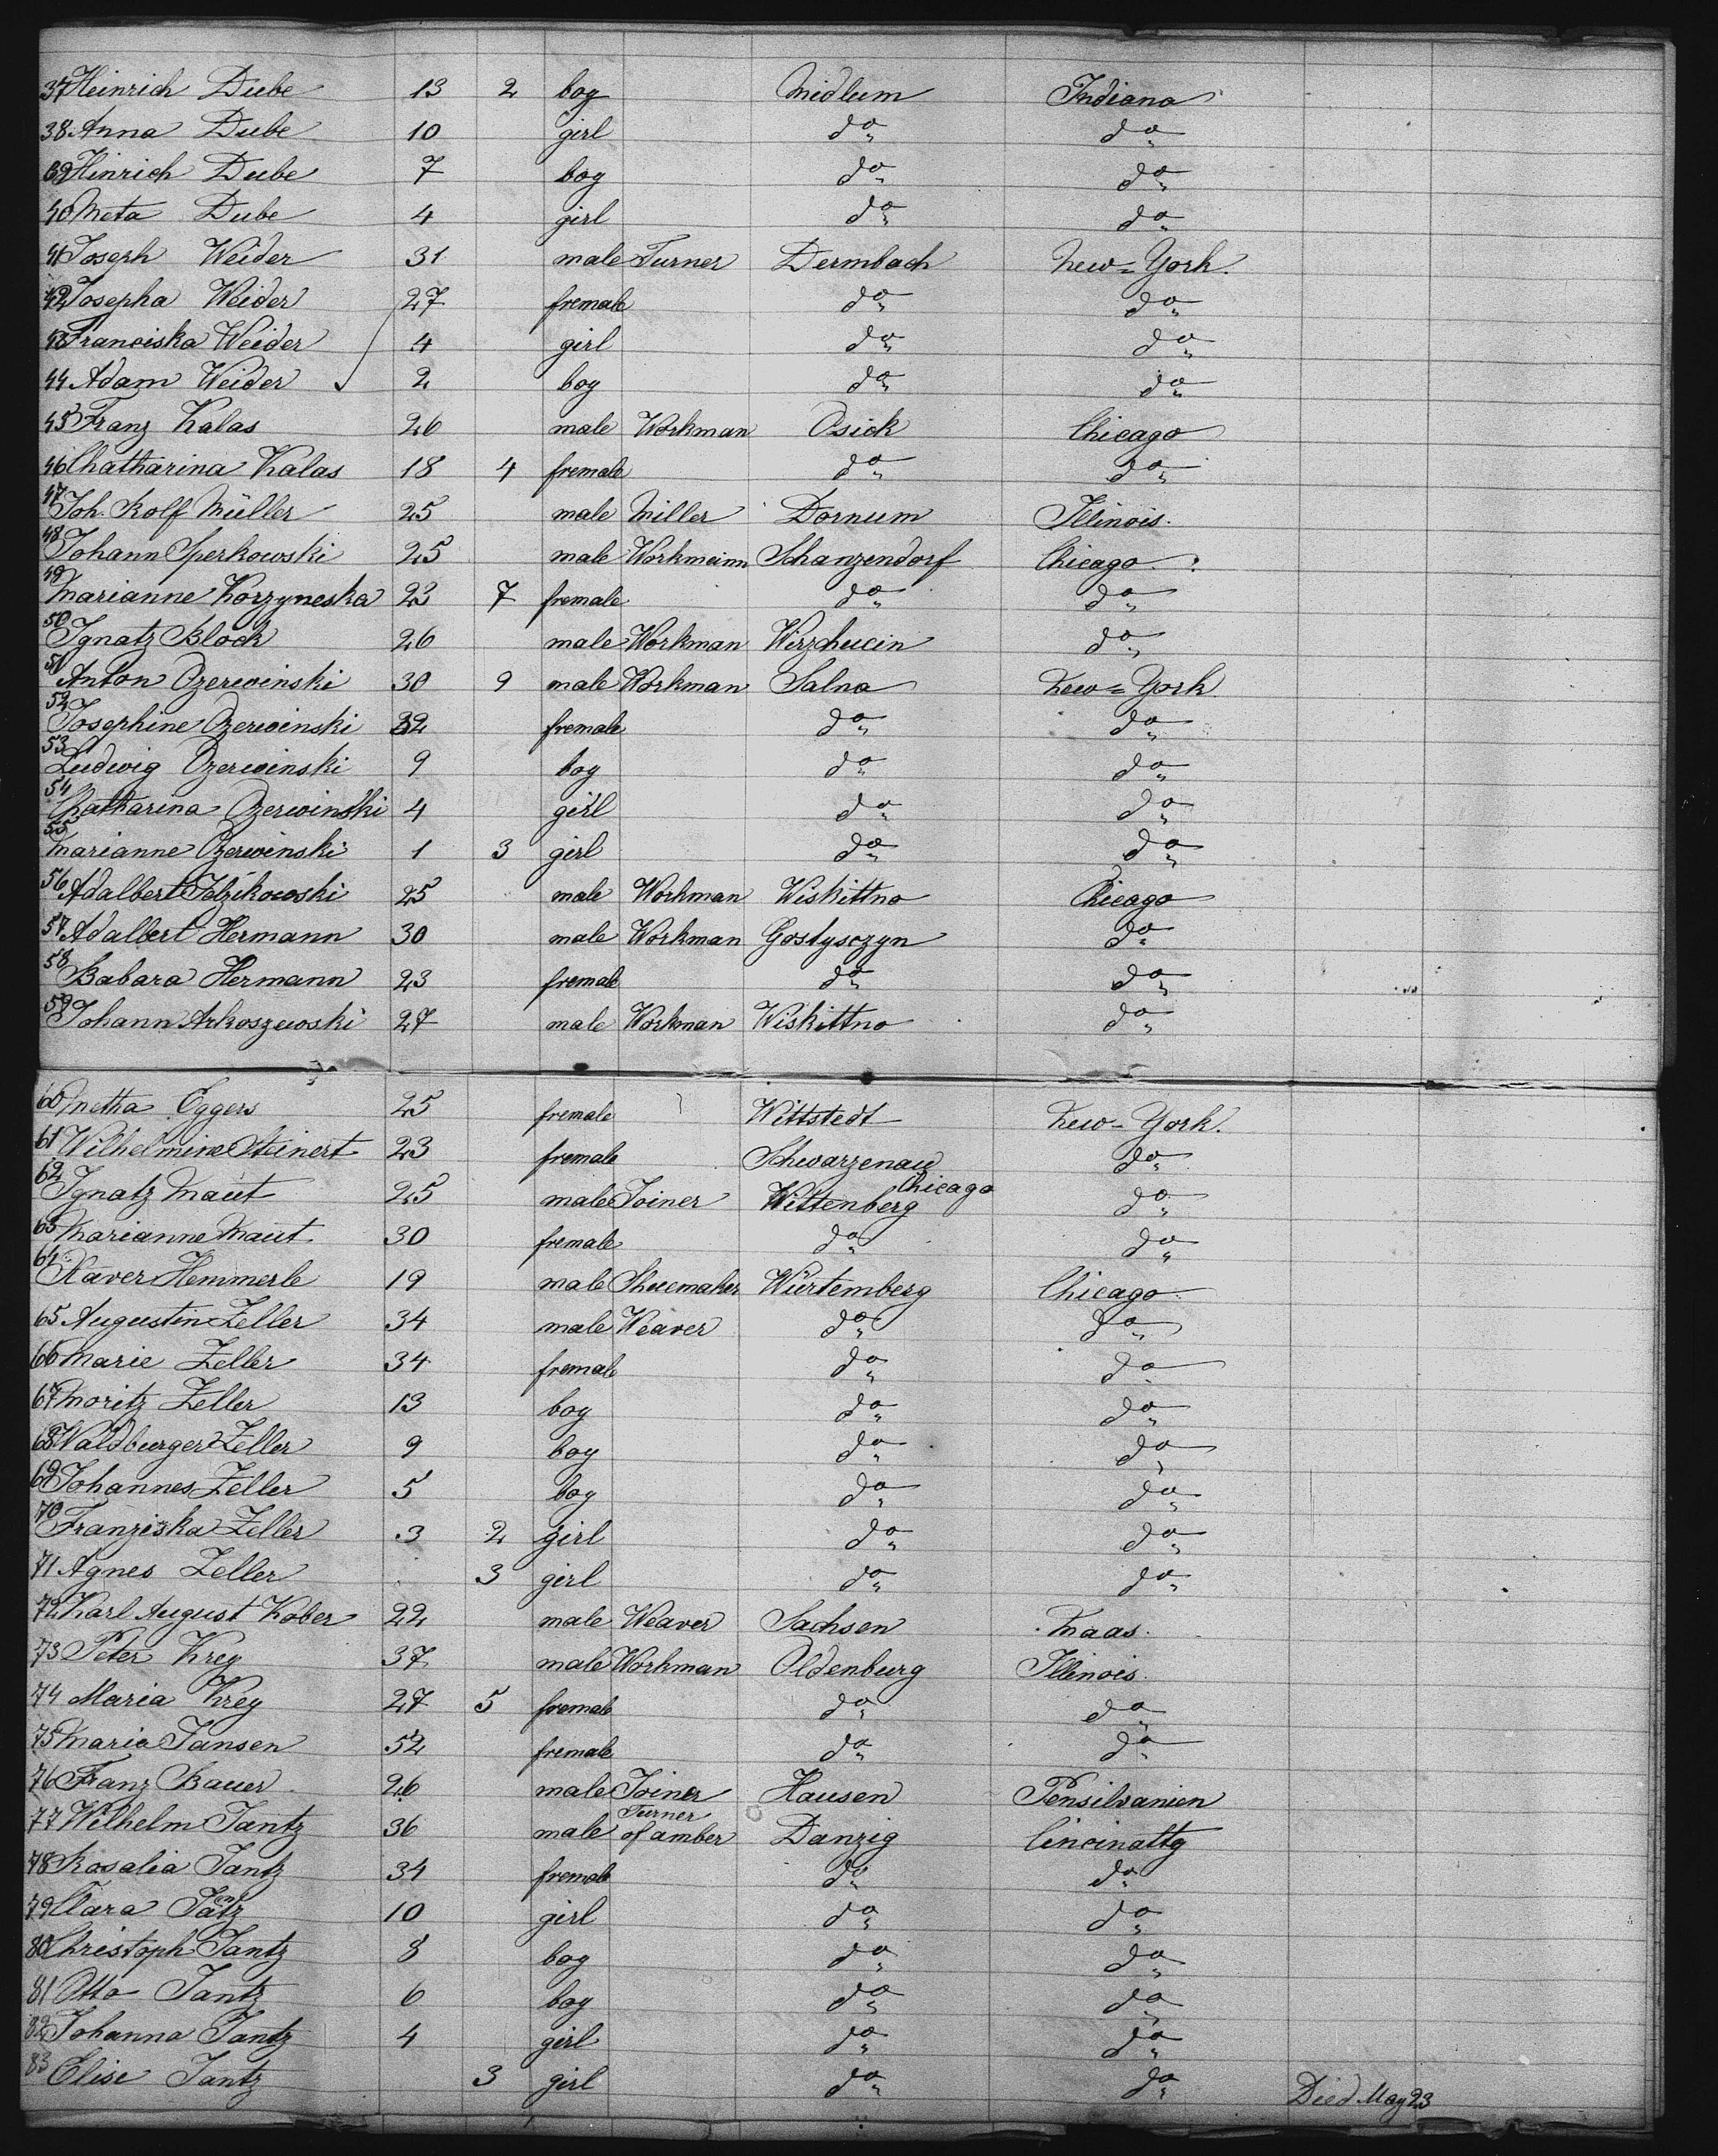 37 Heinrich Dube 13 2 boy Midlum Indiana
38 Anna Dube 10 girl do do
39 Hinrich Dube 7 boy do do
40 Meta Dube 4 girl do do
41 Joseph Weider 31 male Turner Dermbach New-York.
42 Josepha Weider 27 fremale do do
43 Franciska Weider 4 girl do do
44 Adam Weider 2 boy do do
45 Franz Kalas 26 male Workman Osick Chicago
46 Chatharina Kalas 18 4 fremale do do
47 Joh. Rolf Müller 25 male Miller Dornum Illinois.
48 Johann Sperkowski 25 male Workmann Schanzendorf Chicago.
49 Marianne Korzyneska 23 7 fremale do do
50 Ignatz Block 26 male Workman Wirzchucin do
51 Anton Czerwinski 30 9 male Workman Salna New-York
52 Josephine Czerwinski 32 fremale do do
53 Ludwig Czerwinski 9 boy do do
54 Chatharina Czerwinski 4 girl do do
55 Marianne Czerwinski 1 3 girl do do
56 Adalbert 25 male Workman Wiskittno Chicago
57 Adalbert Hermann 30 male Workman Gostysczyn do
58 Babara Hermann 23 fremale do do
59 Johann Arkoszewski 27 male Workman Wiskittno do
60 Metha Eggers 25 fremale Wittstedt New-York.
61 Wilhelmine Steinert 23 fremale Schwarzenau do
62 Ignatz Maut 25 male Joiner Wittenberg Chicago do
63 Marianne Maut 30 fremale do do
64 Xaver Hemmerle 19 male Shuemaker Würtemberg Chicago.
65 Augustin Zeller 34 male Weaver do do
66 Marie Zeller 34 fremale do do
67 Moritz Zeller 13 boy do do
68 Waldburger Zeller 9 boy do do
69 Johannes Zeller 5 boy do do
70 Franziska Zeller 3 2 girl do do
71 Agnes Zeller 3 girl do do
72 Karl August Kober 22 male Weaver Sachsen Maas.
73 Peter Krey 37 male Workman Oldenburg Illinois.
74 Maria Krey 27 5 fremale do do
75 Maria Jansen 52 fremale do do
76 Franz Bauer 26 male Joiner Hausen Pensilvanien
77 Wilhelm Jantz 36 male Turner of amber Danzig Cincinatty
78 Rosalia Jantz 34 fremale do do
79 Clara Jantz 10 girl do do
80 Christoph Jantz 8 boy do do
81 Otto Jantz 6 boy do do
82 Johanna Jantz 4 girl do do
83 Elise Jantz 3 girl do do Died May 23